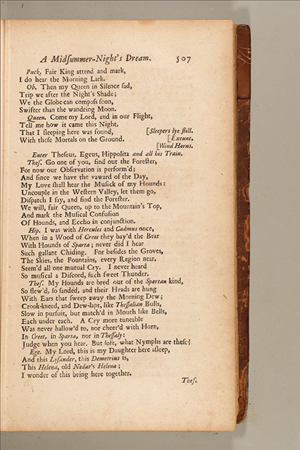 A Midsummer-Night's Dream. 507
Puck. Fair King attend and mark,
I do hear the Morning Lark.
Ob. Then my Queen in Silence sad,
Trip we after the Night's Shade;
We the Globe can compass soon,
Swifter than the wandring Moon.
Queen. Come my Lord, and in our Flight,
Tell me how it came this Night,
That I sleeping here was found, [Sleepers lye still.
With these Mortals on the Ground. [Exeunt.
[Wind Horns.
Enter Theseus, Egeus, Hippolita and all his Train.
Thes. Go one of you, find out the Forester,
For now our Observation is perform'd;
And since we have the vaward of the Day,
My Love shall hear the Musick of my Hounds:
Uncouple in the Western Valley, let them go,
Dispatch I say, and find the Forester.
We will, fair Queen, up to the Mountain's Top,
And mark the Musical Confusion
Of Hounds, and Eccho in conjunction.
Hip. I was with Hercules and Cadmus once,
When in a Wood of Creet they bay'd the Bear
With Hounds of Sparta; never did I hear
Such gallant Chiding. For besides the Groves,
The Skies, the Fountains, every Region near,
Seem'd all one mutual Cry. I never heard
So musical a Discord, such sweet Thunder.
Thes. My Hounds are bred out of the Spartan kind,
So flew'd, so sanded, and their Heads are hung
With Ears that sweep away the Morning Dew;
Crook-kneed, and Dew-lapt, like Thessalian Bulls,
Slow in pursuit, but match'd in Mouth like Bells,
Each under each. A Cry more tuneable
Was never hallow'd to, nor cheer'd with Horn,
In Creet, in Sparta, nor in Thessaly:
Judge when you hear. But soft, what Nymphs are these?
Ege. My Lord, this is my Daughter here asleep,
And this Lysander, this Demetrius is,
This Helena, old Nedar's Helena;
I wonder of this being here together.
Thes.